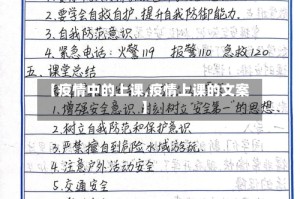 2.要学会自救自护,提升自我防御能力.
3.自我防范意识
4.紧急电话:火警119 报警110 急救120
五.课堂总结
【疫情中的上课,疫情上课的文案】
1.增强安全意识,时刻树立"安全第一"的思想.
2.树立自我防范和保护意识
3.严禁擅自到危险水域游玩.
4.注意户外活动安全
5.交通安全